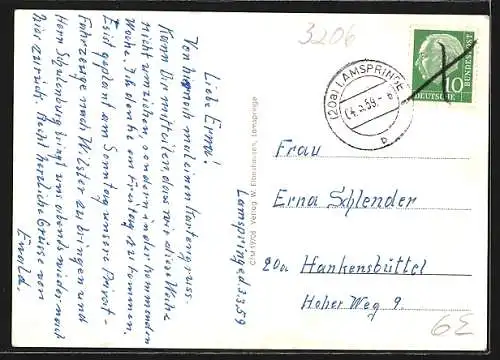 Lamspringe d. 3.3.59
Liebe Erna!
Von hier noch mal einen Kartengruss.
Kann Dir mitteilen, dass wir diese Woche
nicht umziehen, sondern in der kommenden
Woche. Ich denke am Freitag zu kommen.
Es ist geplant am Sonntag unsere Privat-
Fahrzeuge nach Wilster zu bringen und
Herr Schulenburg bringt uns abends wieder nach
hier zurück. Recht herzliche Grüsse von
Ewald.
C/M 1706 Verlag W. Ebbighausen, Lamspringe
3206
(20a) LAMSPRINGE
04.3.59
b
DEUTSCHE BUNDESPOST
10
Frau
Erna Schlender
20a Hankensbüttel
Hoher Weg 9.
6E